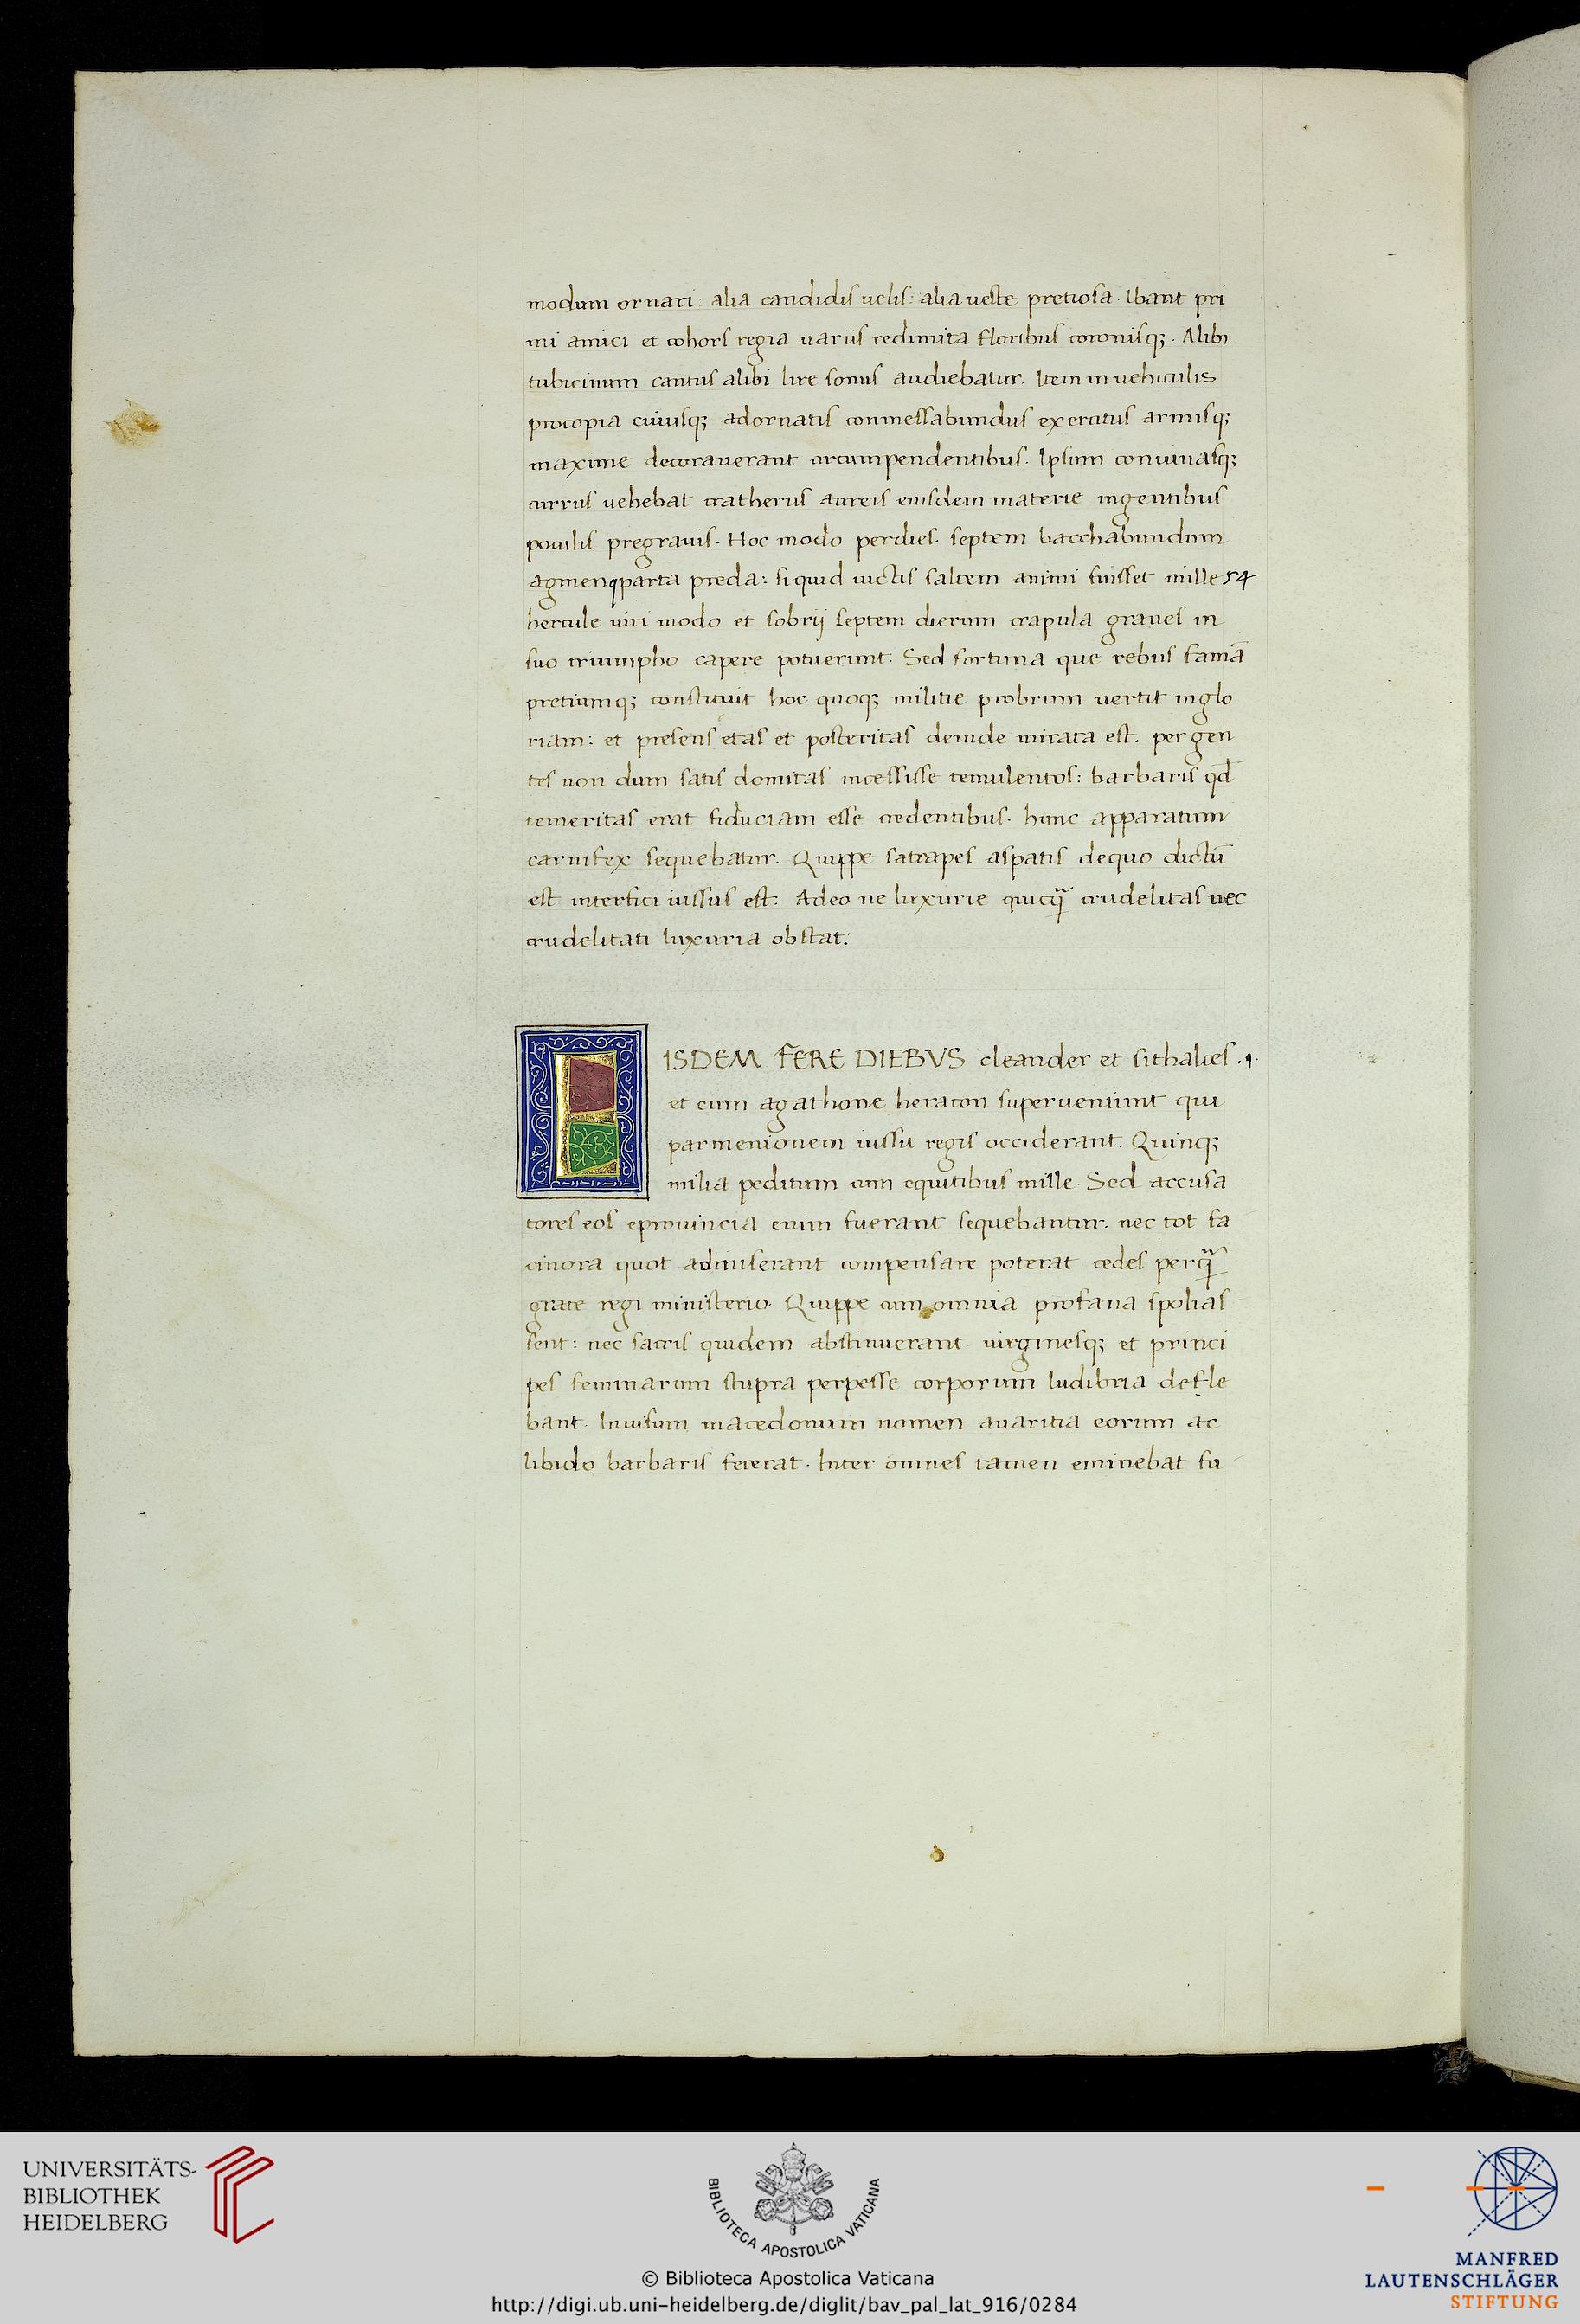 modum ornari: alia candidis uelis: alia ueste pretiosa. Ibant pri
mi amici et cohors regia uariis redimita floribus coronisq;. Alibi
tubicinum cantus alibi lire sonus audiebatur. Item in uehiculis
procopia cuiusq; adornatis conmessabundus exercitus armisq;
maxime decorauerant circumpendentibus. Ipsum conuiuasq;
currus uehebat cratherus aureis eiusdem materie ingentibus
poculis pregrauis. Hoc modo perdies. septem bacchabundum
agmen parta preda: siquid uictis saltem animi fuisset mille 54
hercule uiri modo et sobrij septem dierum crapula graues in
suo triumpho capere potuerunt. Sed fortuna que rebus famā
pretiumq; constituit hoc quoq; militie probrum uertit inglo
riam: et presens etas et posteritas deinde mirata est. per gen
tes non dum satis domitas incessisse temulentos: barbaris qd̄
temeritas erat fiduciam esse credentibus. hunc apparatum
carnifex sequebatur. Quippe satrapes aspatis dequo dictū
est interfici iussus est. Adeo ne luxurie quicq̄ crudelitas nec
crudelitati luxuria obstat.
IISDEM FERE DIEBVS cleander et sithalces .1.
et cum agathone heracon superueniunt qui
parmenionem iussu regis occiderant. Quinq;
milia peditum cum equitibus mille. Sed accusa
tores eos eprouincia cuim fuerant sequebantur. nec tot fa
cinora quot admiserant compensare poterat cedes perq̄
grate regi ministerio. Quippe cum omnia profana spolias
sent: nec sacris quidem abstinuerant uirginesq; et princi
pes feminarum stupra perpesse corporum ludibria defle
bant. Inuisum macedonum nomen auaritia eorum ac
libido barbaris fecerat. Inter omnes tamen eminebat fu
UNIVERSITÄTS-
BIBLIOTHEK
HEIDELBERG
BIBLIOTECA APOSTOLICA VATICANA
© Biblioteca Apostolica Vaticana
http://digi.ub.uni-heidelberg.de/diglit/bav_pal_lat_916/0284
MANFRED
LAUTENSCHLÄGER
STIFTUNG